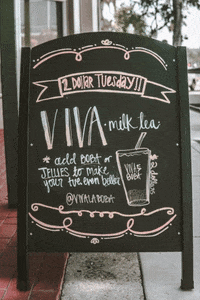 2 DOLLAR TUESDAY!!
VIVA milk tea
* add BOBA or
JELLIES to make
your tue even better
@VIVALABOBA
VIVA
BOBA